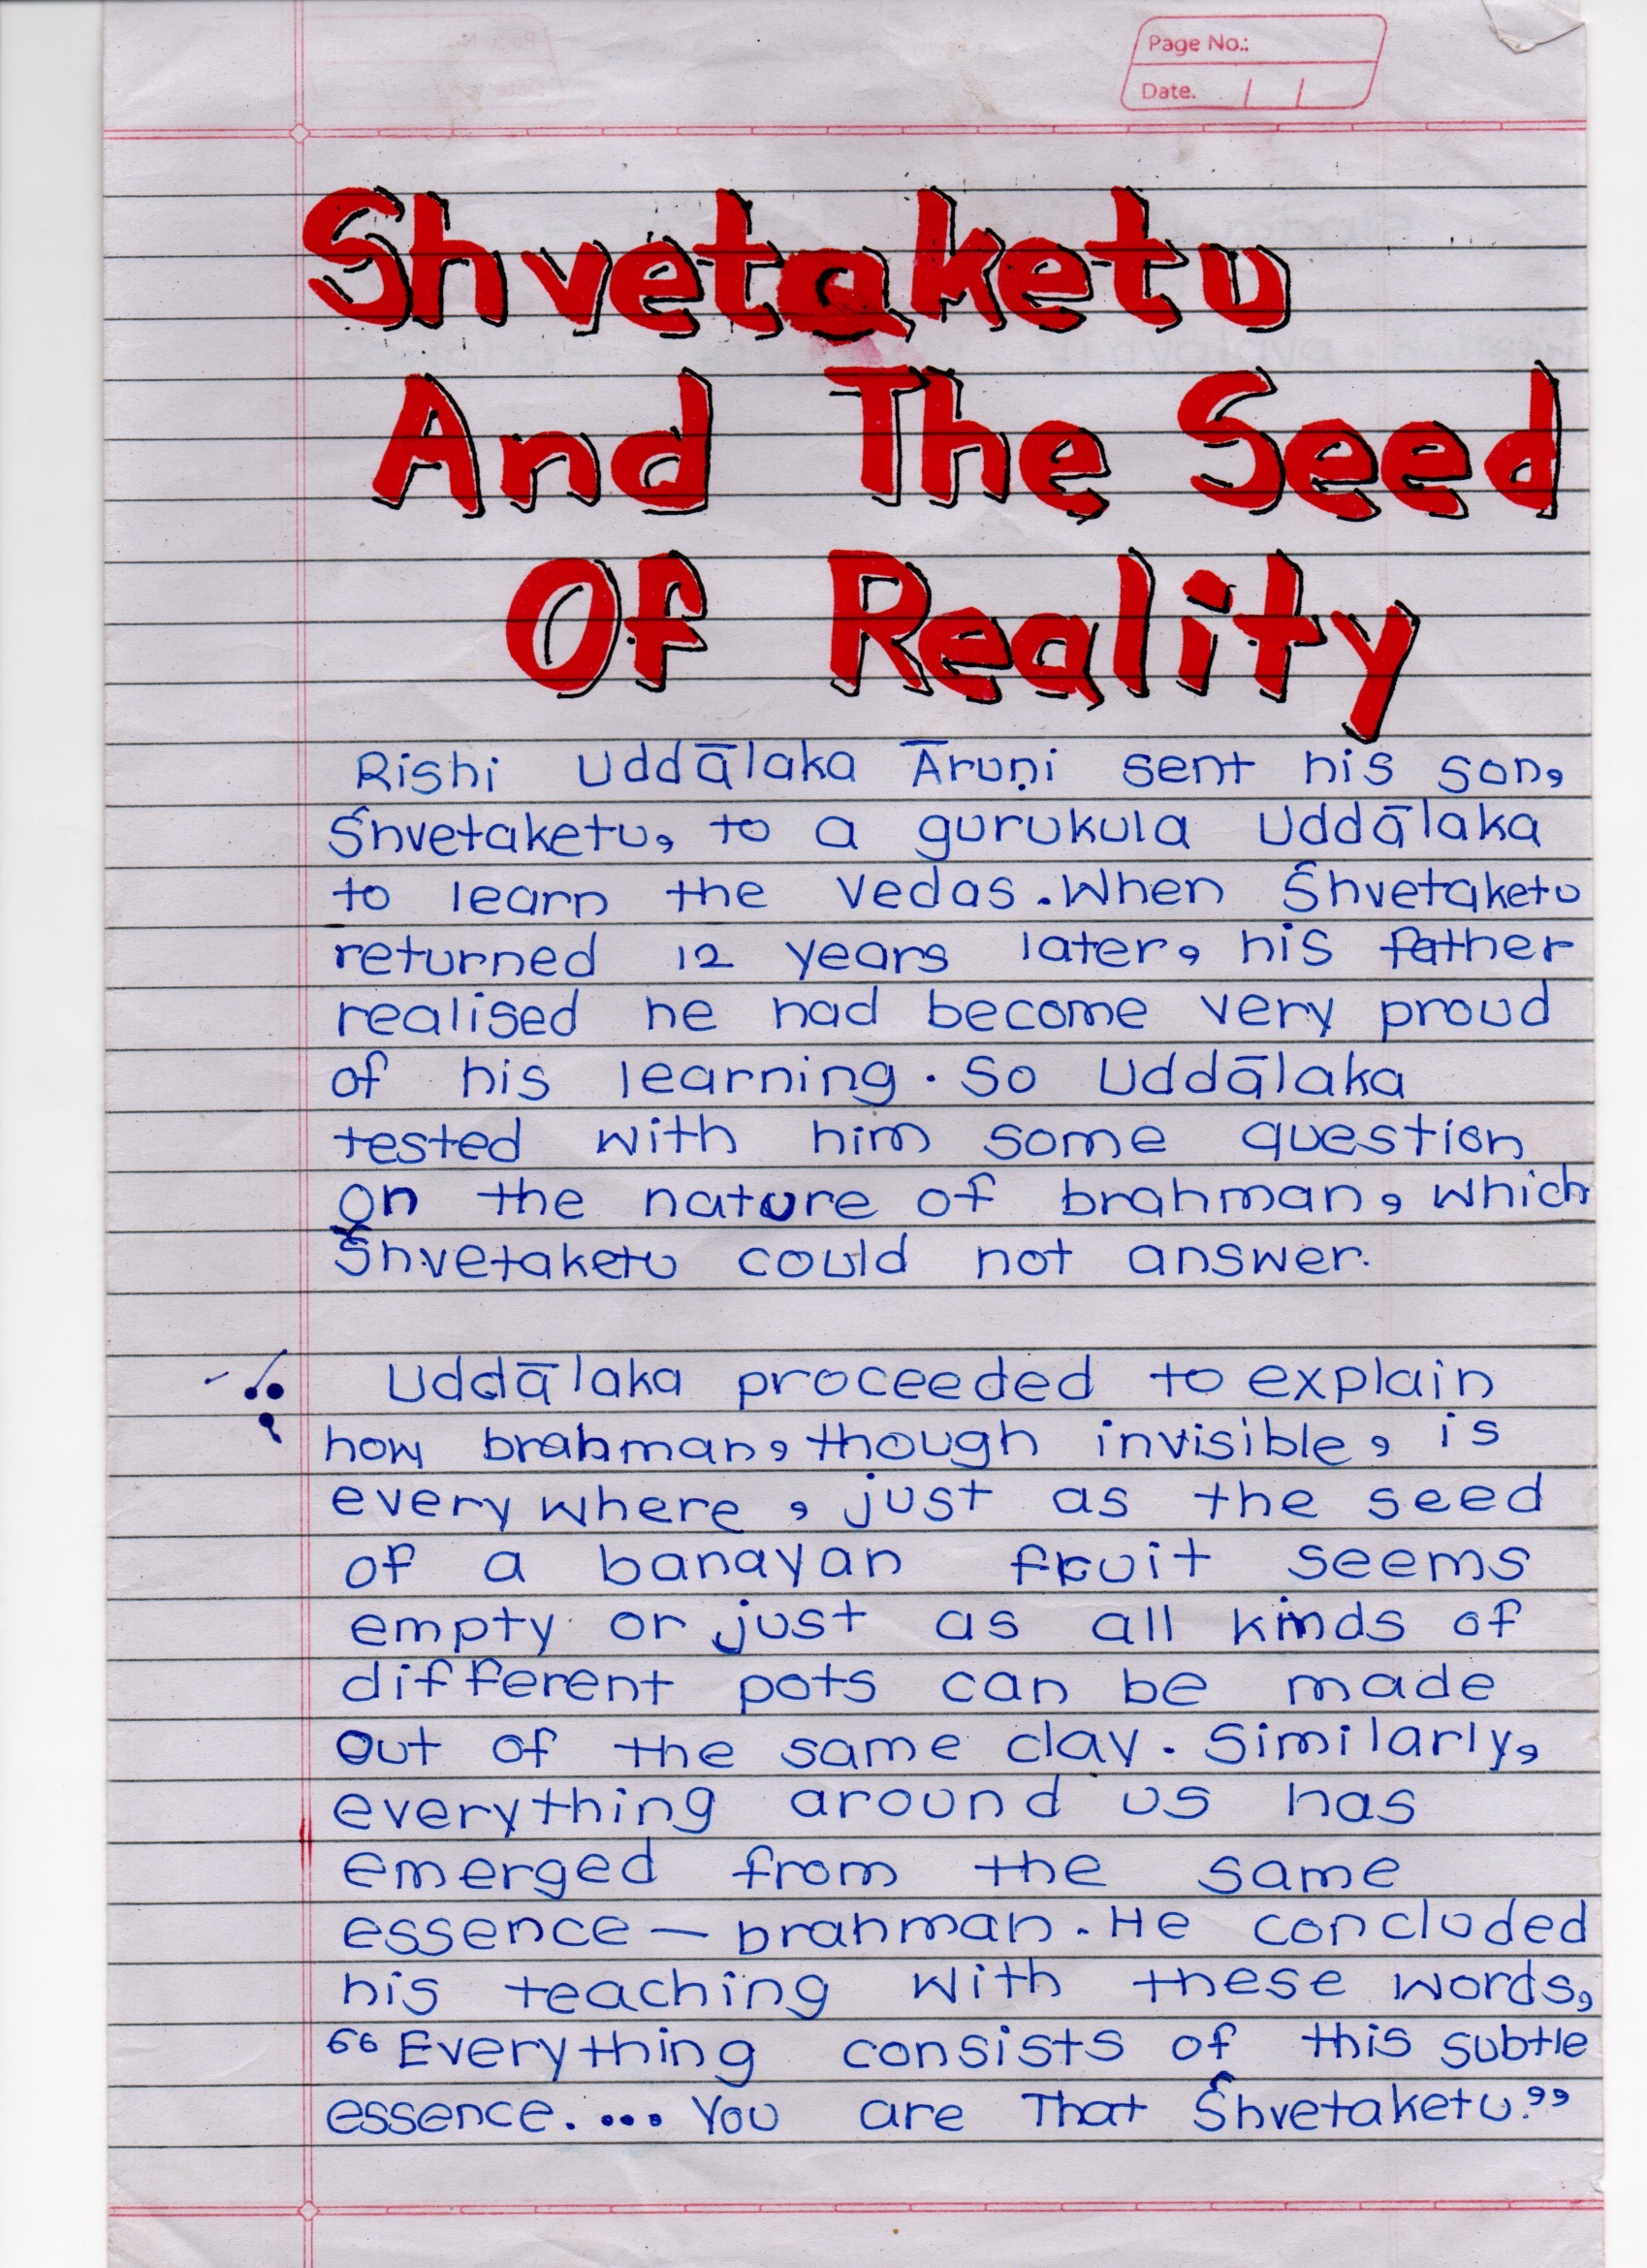 Page No.:
Date.
Shvetaketu
And The Seed
Of Reality
Rishi Uddālaka Āruṇi sent his son,
Śhvetaketu, to a gurukula Uddālaka
to learn the Vedas. When Śhvetaketu
returned 12 years later, his father
realised he had become very proud
of his learning. So Uddālaka
tested with him some question
on the nature of brahman, which
Śhvetaketu could not answer.
Uddālaka proceeded to explain
how brahman, though invisible, is
everywhere, just as the seed
of a banayan fruit seems
empty or just as all kinds of
different pots can be made
out of the same clay. Similarly,
everything around us has
emerged from the same
essence — brahman. He concluded
his teaching with these words,
“Everything consists of this subtle
essence. ... You are That Śhvetaketu.”